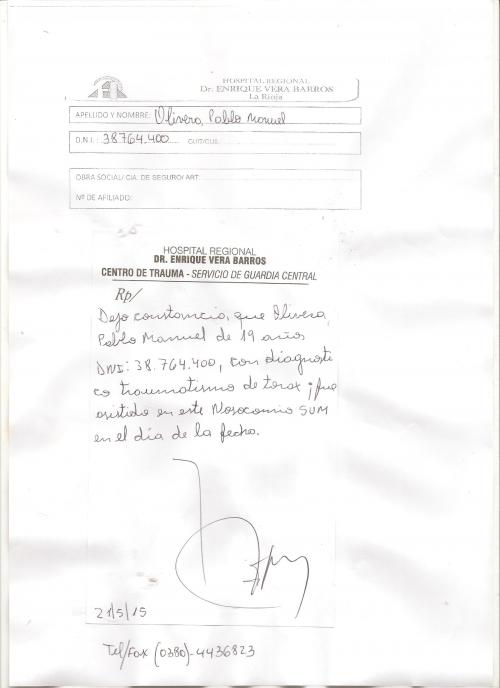 HOSPITAL REGIONAL
Dr. ENRIQUE VERA BARROS
La Rioja
APELLIDO Y NOMBRE: Olivera, Pablo Manuel
D.N.I.: 38.764.400 CUIT/CUIL:
OBRA SOCIAL/ CIA. DE SEGURO/ ART:
Nº DE AFILIADO:
HOSPITAL REGIONAL
DR. ENRIQUE VERA BARROS
CENTRO DE TRAUMA - SERVICIO DE GUARDIA CENTRAL
Rp/
Dejo constancia, que Olivera,
Pablo Manuel de 19 años
DNI: 38.764.400, con diagnosti
co traumatismo de torax ; fue
asistido en este Nosocomio SUM
en el día de la fecha.
21/5/15
Tel/Fax (0380)-4436823